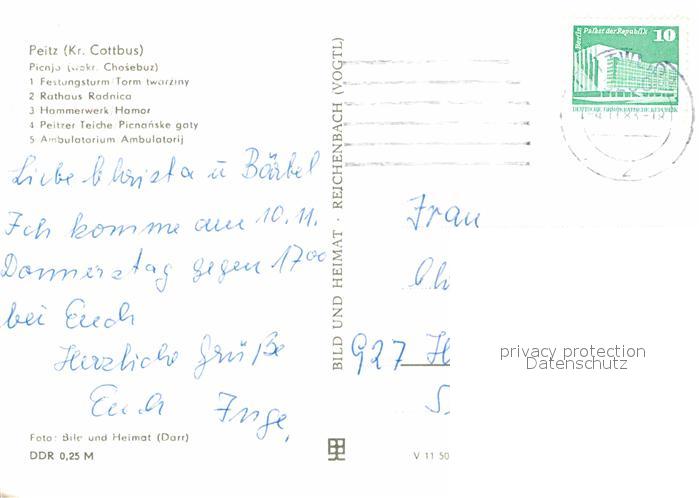 Peitz (Kr. Cottbus)
Picnjo (wokr. Chośebuz)
1 Festungsturm Torm twarziny
2 Rathaus Radnica
3 Hammerwerk Hamor
4 Peitzer Teiche Picnańske gaty
5 Ambulatorium Ambulatorij
Liebe Christa u Bärbel
Ich komme am 10.11.
Donnerstag gegen 1700
bei Euch
Herzliche Grüße
Euch Inge,
Foto: Bild und Heimat (Darr)
DDR 0,25 M
BILD UND HEIMAT · REICHENBACH (VOGTL)
V 11 50
Berlin Palast der Republik 10
DEUTSCHE DEMOKRATISCHE REPUBLIK
Frau
Ch
927 H
S
privacy protection
Datenschutz